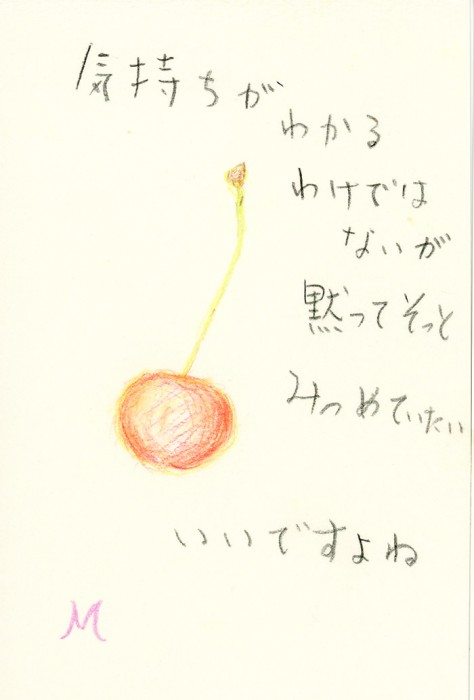 気持ちが
わかる
わけでは
ないが
黙ってそっと
みつめていたい
いいですよね
M